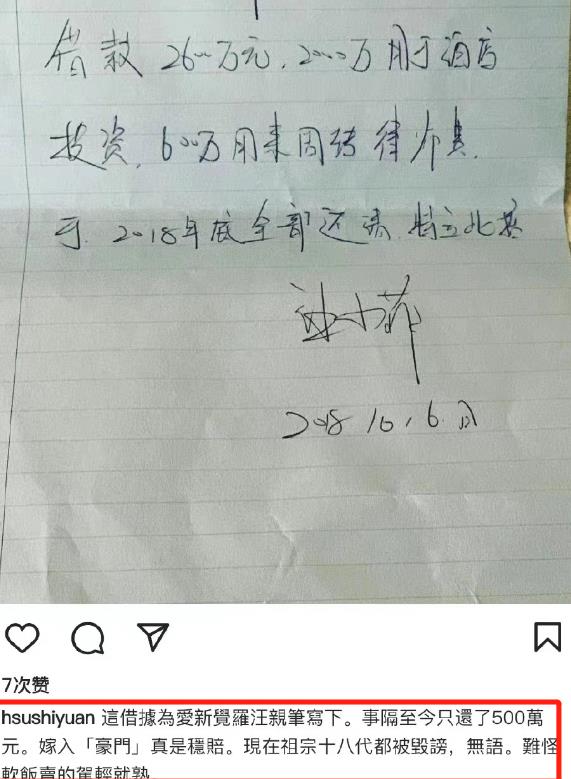 借款2600万元，2000万用于酒店
投资，600万用来周转律师费，
于2018年底全部还清，特立此据
汪小菲
2018 10，6
7次赞
hsushiyuan 這借據為愛新覺羅汪親筆寫下。事隔至今只還了500萬
元。嫁入「豪門」真是穩賠。現在祖宗十八代都被毀謗，無語。難怪
軟飯賣的駕輕就熟